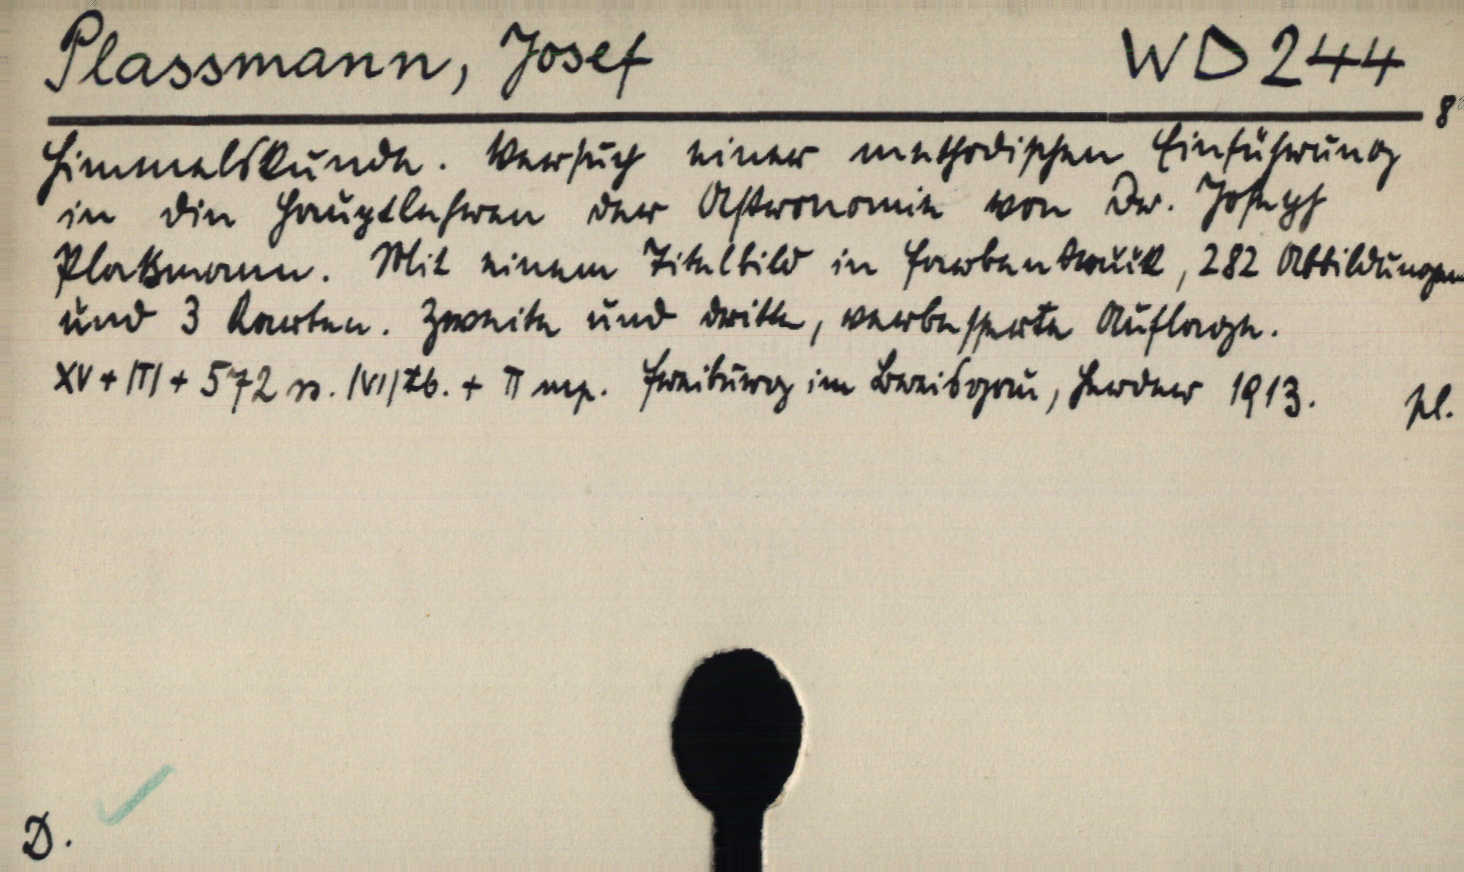 Plassmann, Josef WD 244
8°
Himmelskunde. Versuch einer methodischen Einführung
in die Hauptlehren der Astronomie von Dr. Joseph
Plaßmann. Mit einem Titelbild in Farbendruck, 282 Abbildungen
und 3 Karten. Zweite und dritte, verbesserte Auflage.
XV + |II| + 572 S. |VI| tb. + II mp. Freiburg im Breisgau, Herder 1913. pl.
D.